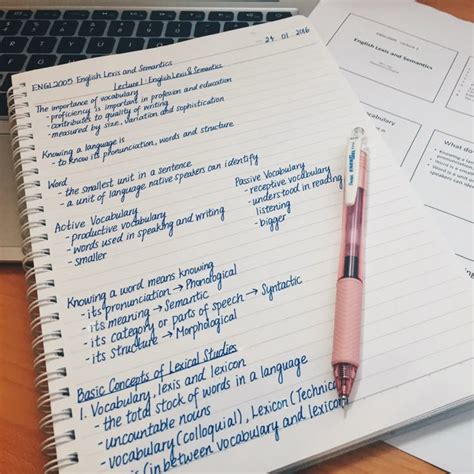 24. 01. 2016
ENGL2005 English Lexis and Semantics
Lecture 1: English Lexis & Semantics
The importance of vocabulary
- proficiency is important in profession and education
- contributes to quality of writing
- measured by size, variation and sophistication
Knowing a language is
- to know its pronunciation, words and structure
Word
- the smallest unit in a sentence
- a unit of language native speakers can identify
Active Vocabulary
- productive vocabulary
- words used in speaking and writing
- smaller
Passive Vocabulary
- receptive vocabulary
- understood in reading,
listening
- bigger
Knowing a word means knowing
- its pronunciation → Phonological
- its meaning → Semantic
- its category or parts of speech → Syntactic
- its structure → Morphological
Basic Concepts of Lexical Studies
1. Vocabulary, lexis and lexicon
- the total stock of words in a language
- uncountable nouns
- vocabulary (colloquial), Lexicon (Technical
(in between vocabulary and lexicon)
English Lexis and Semantics
What do